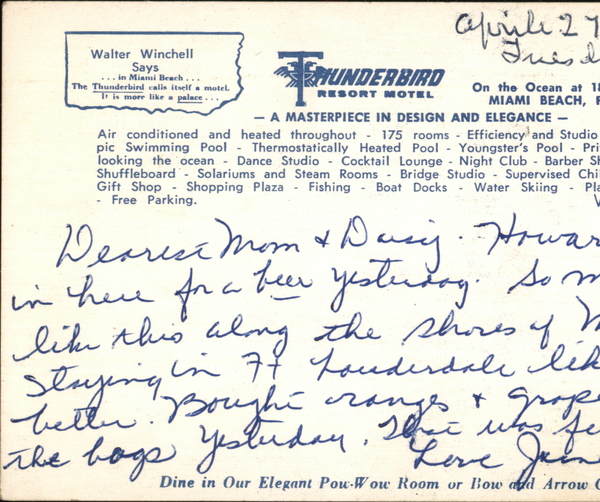 Aprile 27
Tuesd
Walter Winchell
Says
. . . in Miami Beach . . .
The Thunderbird calls itself a motel.
It is more like a palace . . .
THUNDERBIRD
RESORT MOTEL
On the Ocean at 18
MIAMI BEACH, F
— A MASTERPIECE IN DESIGN AND ELEGANCE —
Air conditioned and heated throughout - 175 rooms - Efficiency and Studio
pic Swimming Pool - Thermostatically Heated Pool - Youngster's Pool - Pri
looking the ocean - Dance Studio - Cocktail Lounge - Night Club - Barber Sh
Shuffleboard - Solariums and Steam Rooms - Bridge Studio - Supervised Chil
Gift Shop - Shopping Plaza - Fishing - Boat Docks - Water Skiing - Pla
- Free Parking. V
Dearest Mom & Daisy. Howar
in here for a beer yesterday. So m
like this along the shores of M
Staying in Ft Lauderdale lik
better. Bought oranges & grape
the bags yesterday. That was fe
Love June
Dine in Our Elegant Pow-Wow Room or Bow and Arrow C